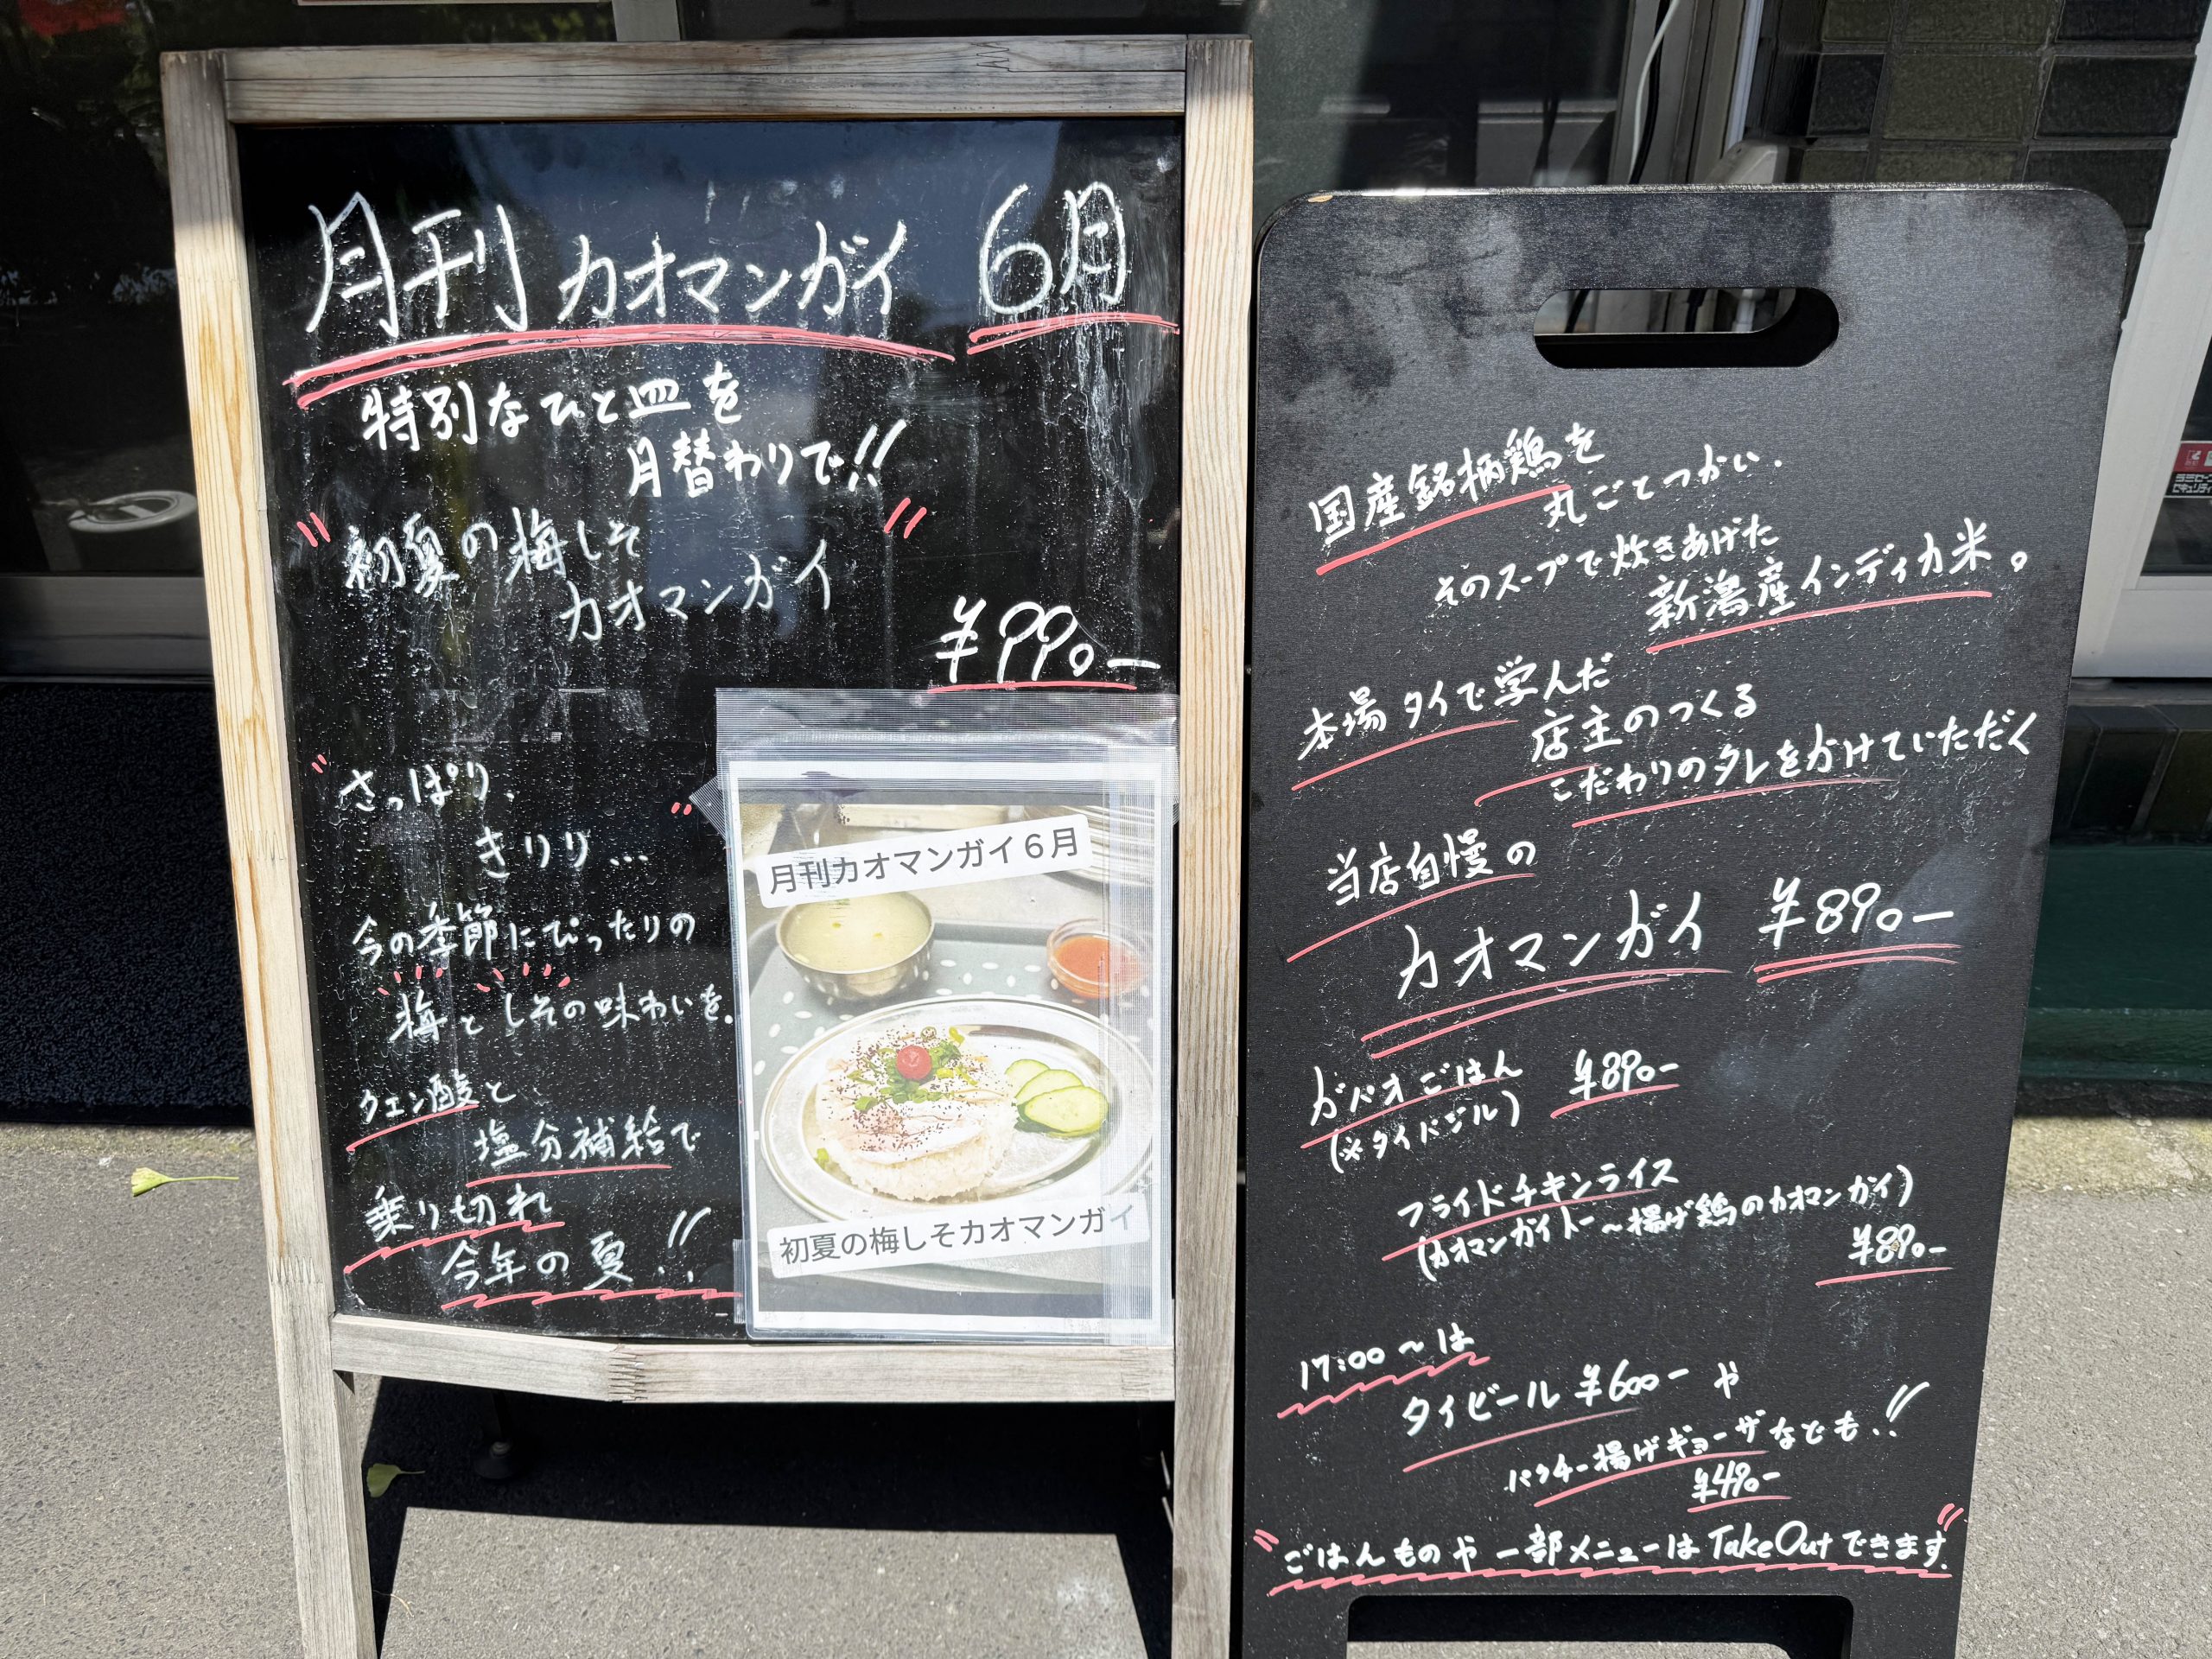 月刊 カオマンガイ 6月
特別なひと皿を
月替わりで!!
"初夏の梅しそ
カオマンガイ"
¥990-
"さっぱり、
きりり…"
今の季節にぴったりの
梅としその味わいを.
クエン酸と
塩分補給で
乗り切れ
今年の夏!!
月刊カオマンガイ6月
初夏の梅しそカオマンガイ
国産銘柄鶏を
丸ごとつかい.
そのスープで炊きあげた
新潟産インディカ米。
本場タイで学んだ
店主のつくる
こだわりのタレをかけていただく
当店自慢の
カオマンガイ ¥890-
ガパオごはん ¥890-
(※タイバジル)
フライドチキンライス
(カオマンガイトー〜揚げ鶏のカオマンガイ)
¥890-
17:00〜は
タイビール ¥600- や
パクチー揚げギョーザなども!!
¥490-
"ごはんものや一部メニューはTakeOutできます."